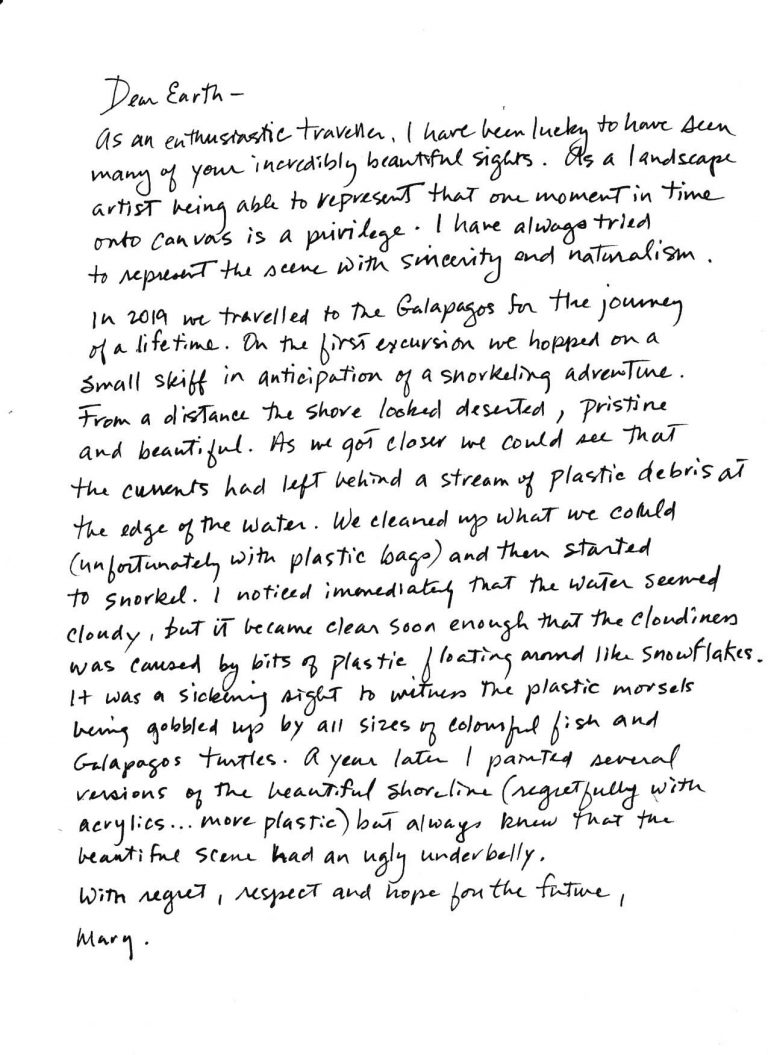 Dear Earth –
As an enthusiastic traveller, I have been lucky to have seen
many of your incredibly beautiful sights. As a landscape
artist being able to represent that one moment in time
onto canvas is a privilege. I have always tried
to represent the scene with sincerity and naturalism.
In 2019 we travelled to the Galapagos for the journey
of a lifetime. On the first excursion we hopped on a
small skiff in anticipation of a snorkeling adventure.
From a distance the shore looked deserted, pristine
and beautiful. As we got closer we could see that
the currents had left behind a stream of plastic debris at
the edge of the water. We cleaned up what we could
(unfortunately with plastic bags) and then started
to snorkel. I noticed immediately that the water seemed
cloudy, but it became clear soon enough that the cloudiness
was caused by bits of plastic floating around like snowflakes.
It was a sickening sight to witness the plastic morsels
being gobbled up by all sizes of colourful fish and
Galapagos turtles. A year later I painted several
versions of the beautiful shoreline (regretfully with
acrylics... more plastic) but always knew that the
beautiful scene had an ugly underbelly.
With regret, respect and hope for the future,
Mary.